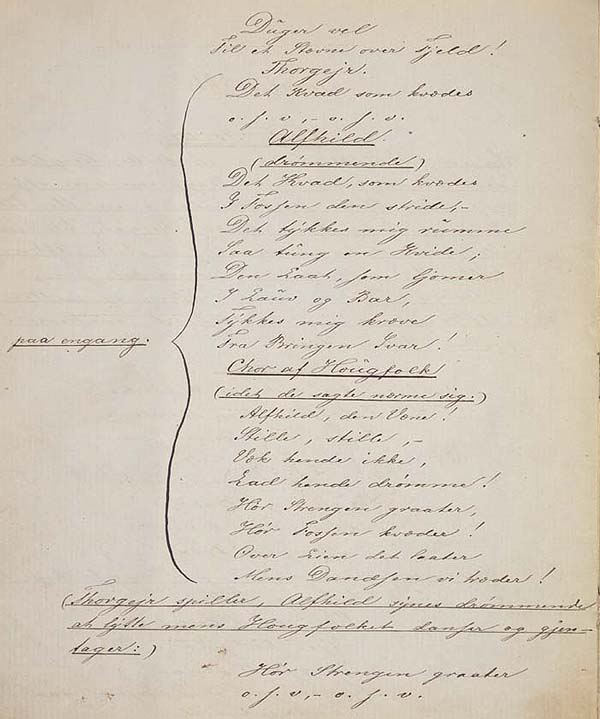 Düger vel
Til et Stevne over Fjeld!
Thorgejr.
Det Kvad som kvædes
o. s. v, – o. s. v.
Alfhild.
(drømmende)
Det Kvad, som kvædes
I Fossen den stride, –
Det tykkes mig rümme
Saa tüng en Kvide;
Den Laat, som Gjømer
I Lauv og Bar,
Tykkes mig kræve
Fra Bringen Svar!
Chor af Hoügfolk
(idet de sagte nærme sig.)
Alfhild, den Væne!
Stille, stille, –
Væk hende ikke,
Lad hende drømme!
Hør Strengen graater,
Hør Fossen kvæder!
Over Lien det laater
Mens Dandsen vi træder!
paa engang.
(Thorgejr spiller, Alfhild synes drømmende
at lytte mens Hougfolket danser og gjen-
tager:)
Hør Strengen graater
o. s. v, – o. s. v.